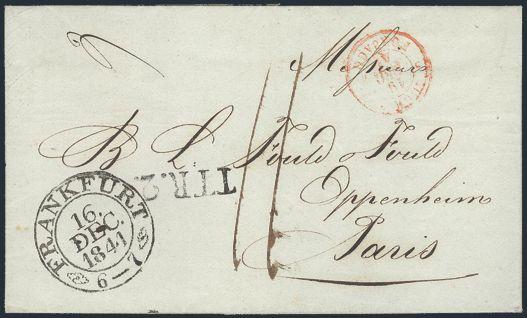 Messieurs
B. L. Fould & Fould
Oppenheim
Paris
T.T.R.2.
FRANKFURT
16.
DEC.
1841
6—7
11